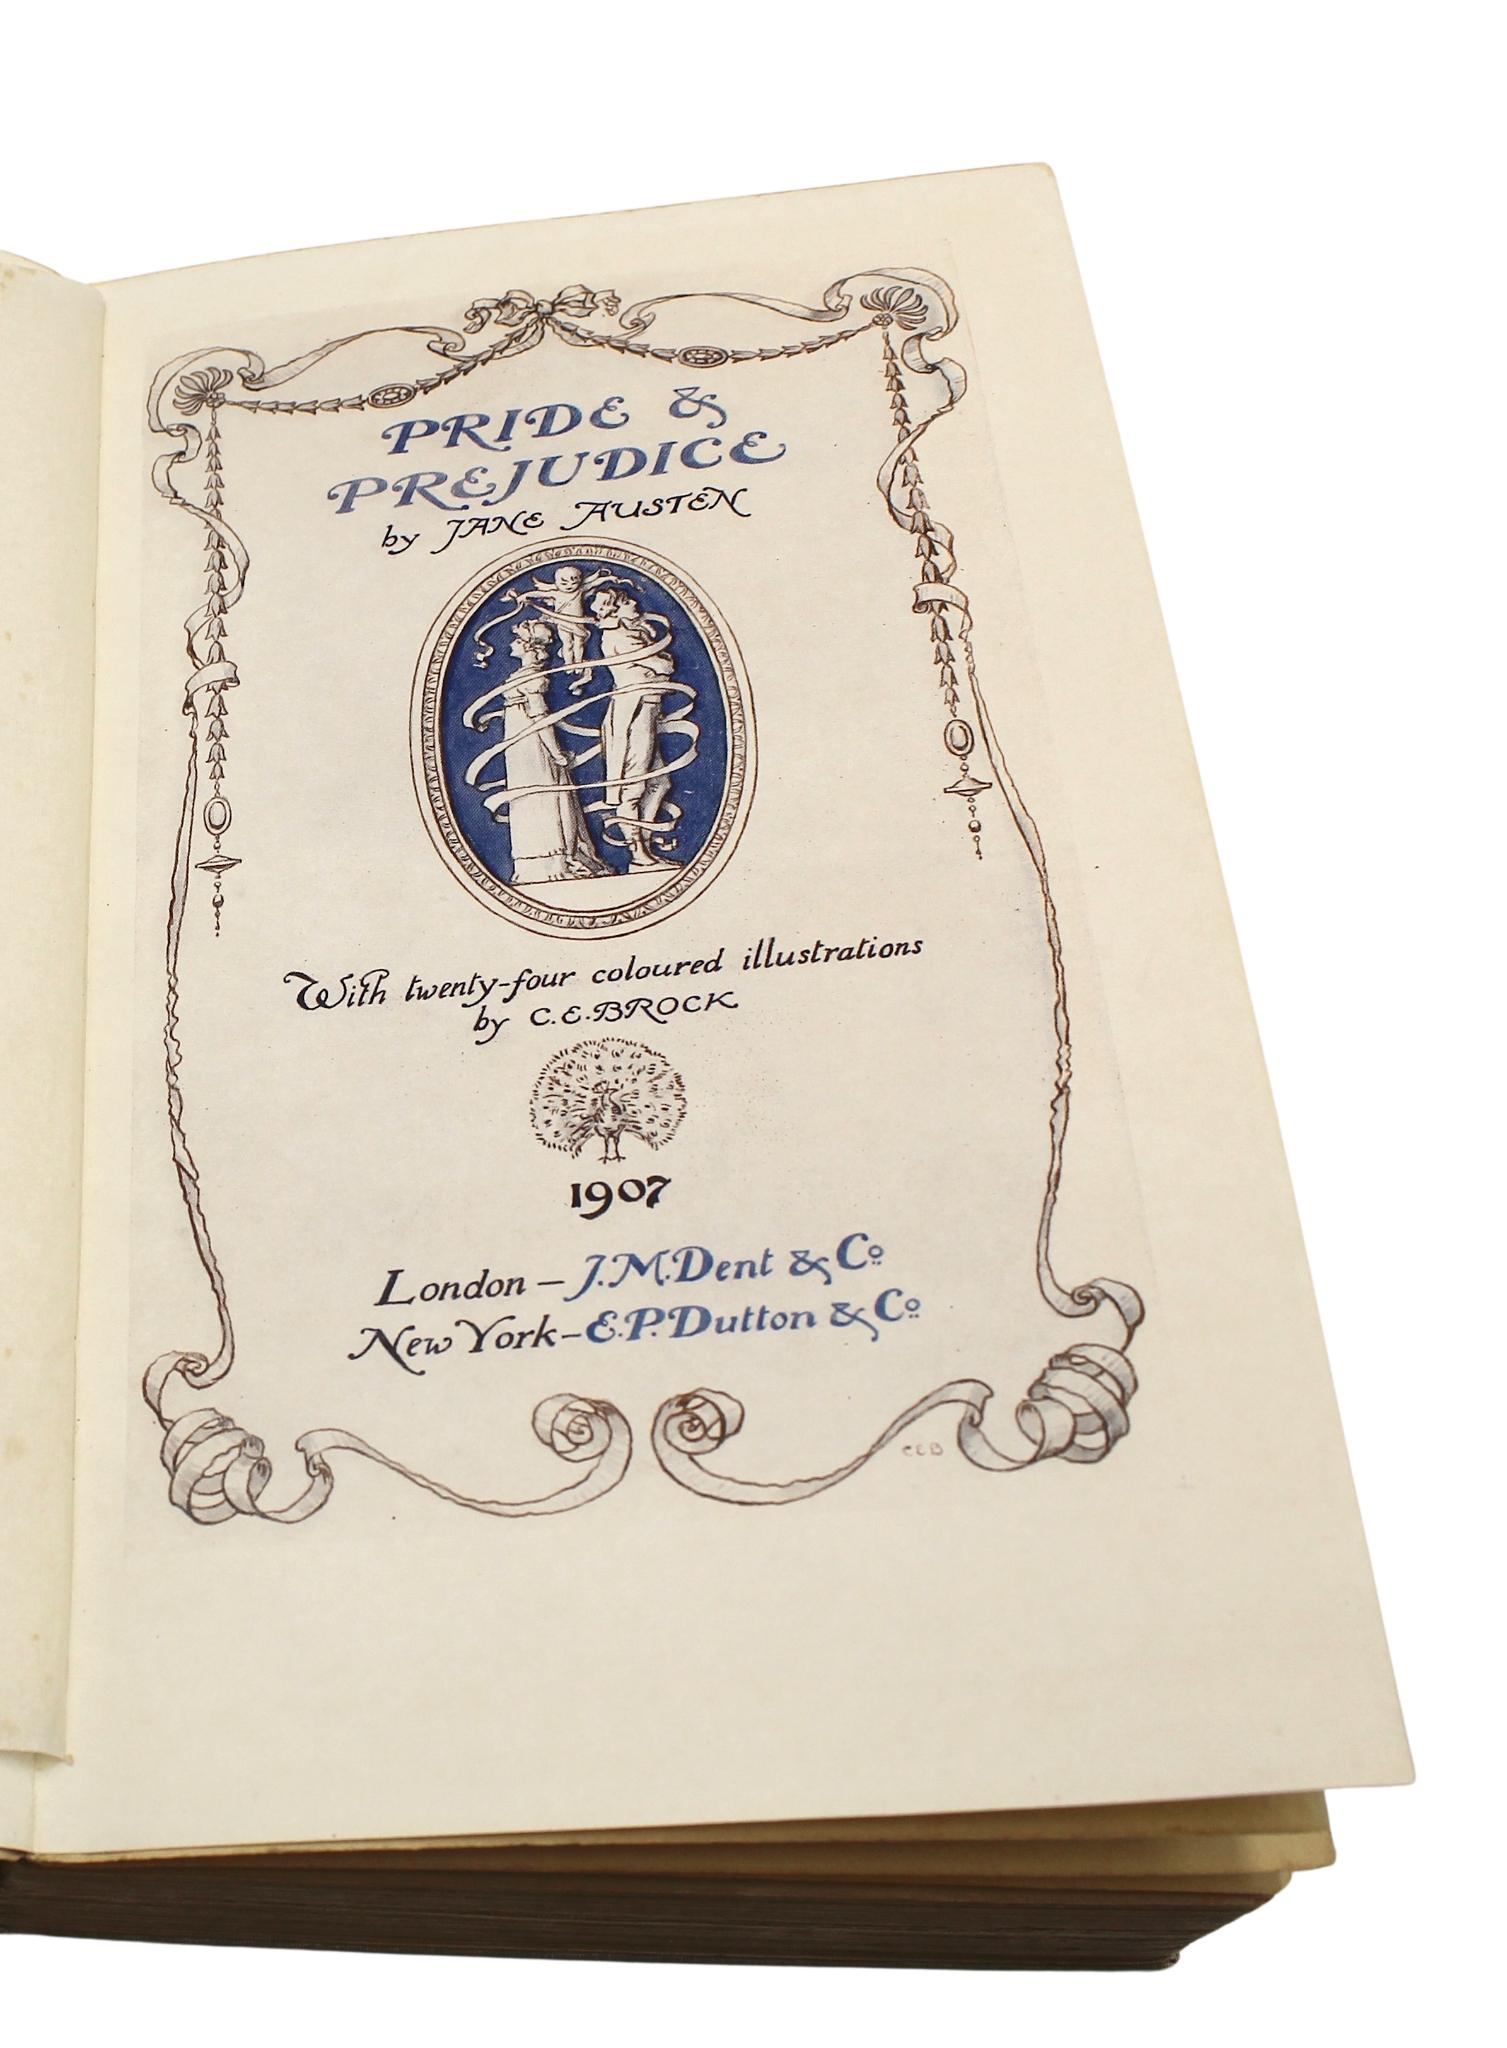 PRIDE &
PREJUDICE
by JANE AUSTEN
With twenty-four coloured illustrations
by C.E.BROCK
1907
London – J.M.Dent & Co
New York – E.P.Dutton & Co
CEB